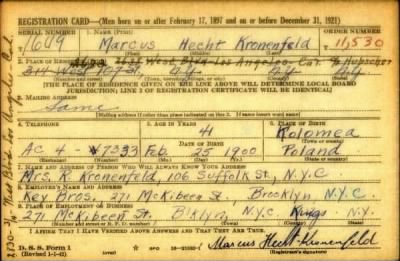 REGISTRATION CARD—(Men born on or after February 17, 1897 and on or before December 31, 1921)
SERIAL NUMBER 1. NAME (Print) ORDER NUMBER
1649 Marcus Hecht Kronenfeld 11,530
(First) (Middle) (Last)
2. PLACE OF RESIDENCE (Print)
West Blvd. Los Angeles Cal.
314 West St. N.Y. N.Y. N.Y.
[THE PLACE OF RESIDENCE GIVEN ON THE LINE ABOVE WILL DETERMINE LOCAL BOARD
JURISDICTION; LINE 2 OF REGISTRATION CERTIFICATE WILL BE IDENTICAL]
3. MAILING ADDRESS
Same
[Mailing address if other than place indicated on line 2. If same insert word same]
4. TELEPHONE 5. AGE IN YEARS 6. PLACE OF BIRTH
41 Kolomea
DATE OF BIRTH
AC 4 - 7533 Feb. 25 1900 Poland
7. NAME AND ADDRESS OF PERSON WHO WILL ALWAYS KNOW YOUR ADDRESS
Mrs. R. Kronenfeld, 106 Suffolk St., N.Y.C.
8. EMPLOYER'S NAME AND ADDRESS
Key Bros. 271 McKibben St., Brooklyn N.Y.C.
9. PLACE OF EMPLOYMENT OR BUSINESS
271 McKibben St. B'klyn, N.Y.C. Kings N.Y.
I AFFIRM THAT I HAVE VERIFIED ABOVE ANSWERS AND THAT THEY ARE TRUE.
D. S. S. Form 1
(Revised 1-1-42) (over) Marcus Hecht Kronenfeld
(Registrant's signature)
West Blvd Los Angeles Cal.